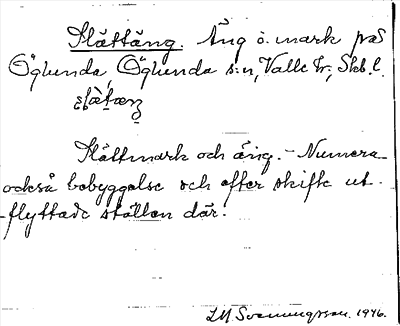 Slättäng. Äng o. mark på
Öglunda, Öglunda s:n, Valle hr; Skb. l.
Slättmark och äng. - Numera
också bebyggelse och efter skifte ut-
flyttade ställen där.
LM Svenungsson. 1946.